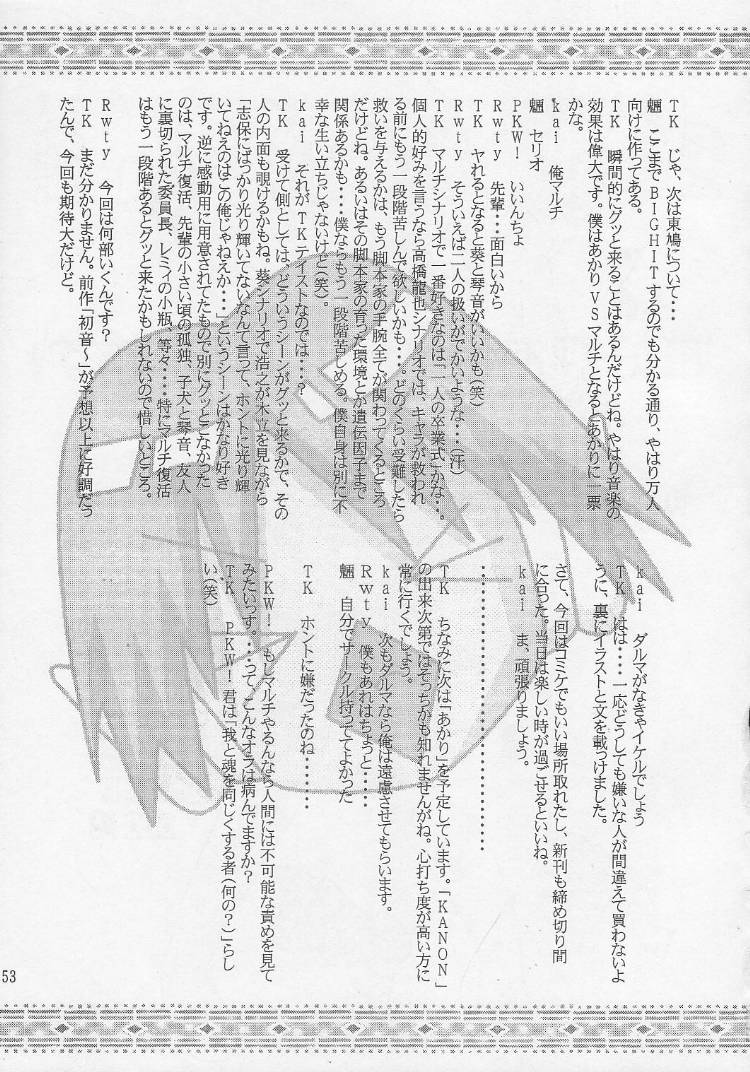 TK　じゃ、次は東鳩について・・・
魍　ここまでＢＩＧＨＩＴするのでも分かる通り、やはり万人
向けに作ってある。
TK　瞬間的にグッと来ることはあるんだけどね。やはり音楽の
効果は偉大です。僕はあかりＶＳマルチとなるとあかりに一票
かな。
kai　俺マルチ
魍　セリオ
PKW!　いいんちょ
Rwty　先輩・・・面白いから
TK　ヤれるとなると葵と琴音がいいかも(笑)
Rwty　そういえば二人の扱いがでかいような・・・(汗)
TK　マルチシナリオで一番好きなのは「二人の卒業式」かな・・。
個人的好みを言うなら高橋龍也シナリオでは、キャラが救われ
る前にもう一段階苦しんで欲しいかも・・・。どのくらい受難したら
救いを与えるかは、もう脚本家の手腕全てが関わってくるところ
だけどね。あるいはその脚本家の育った環境とか遺伝因子まで
関係あるかも・・・僕ならもう一段階苦しめる。僕自身は別に不
幸な生い立ちじゃないけど(笑)。
kai　それがＴＫテイストなのでは・・・？
TK　受けて側としては、どういうシーンがグッと来るかで、その
人の内面も覗けるかもね。葵シナリオで浩之が木立を見ながら
「志保にばっかり光り輝いてないなんて言って、ホントに光り輝
いてねえのはこの俺じゃねえか・・・」というシーンはかなり好き
です。逆に感動用に用意されてたもので別にグッとこなかった
のは、マルチ復活、先輩の小さい頃の孤独、子犬と琴音、友人
に裏切られた委員長、レミィの小瓶、等々・・・・特にマルチ復活
はもう一段階あるとグッと来たかもしれないので惜しいところ。
Rwty　今回は何部いくんです？
TK　まだ分かりません。前作「初音～」が予想以上に好調だっ
たんで、今回も期待大だけど。
kai　ダルマがなきゃイケルでしょう
TK　はは・・・・一応どうしても嫌いな人が間違えて買わないよ
うに、裏にイラストと文を載っけました。
さて、今回はコミケでもいい場所取れたし、新刊も締め切り間
に合った。当日は楽しい時が過ごせるといいね。
kai　ま、頑張りましょう。
・・・・・・・・・・・・・・・・・・・・・・・・・・・・
TK　ちなみに次は「あかり」を予定しています。「ＫＡＮＯＮ」
の出来次第ではそっちかも知れませんがね。心打ち度が高い方に
常に行くでしょう。
kai　次もダルマなら俺は遠慮させてもらいます。
Rwty　僕もあれはちょっと・・・・
魍　自分でサークル持っててよかった
TK　ホントに嫌だったのね・・・・・
PKW!　もしマルチやるんなら人間には不可能な責めを見て
みたいっす。・・・って、こんなオラは病んでますか？
TK　PKW!君は「我と魂を同じくする者(何の？)」らし
い(笑)
53